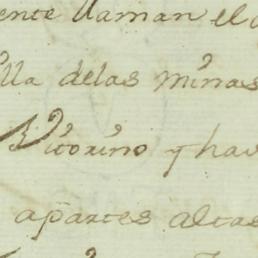 ente llaman el
lla delas minas
Vitorino y hai
apartes altas